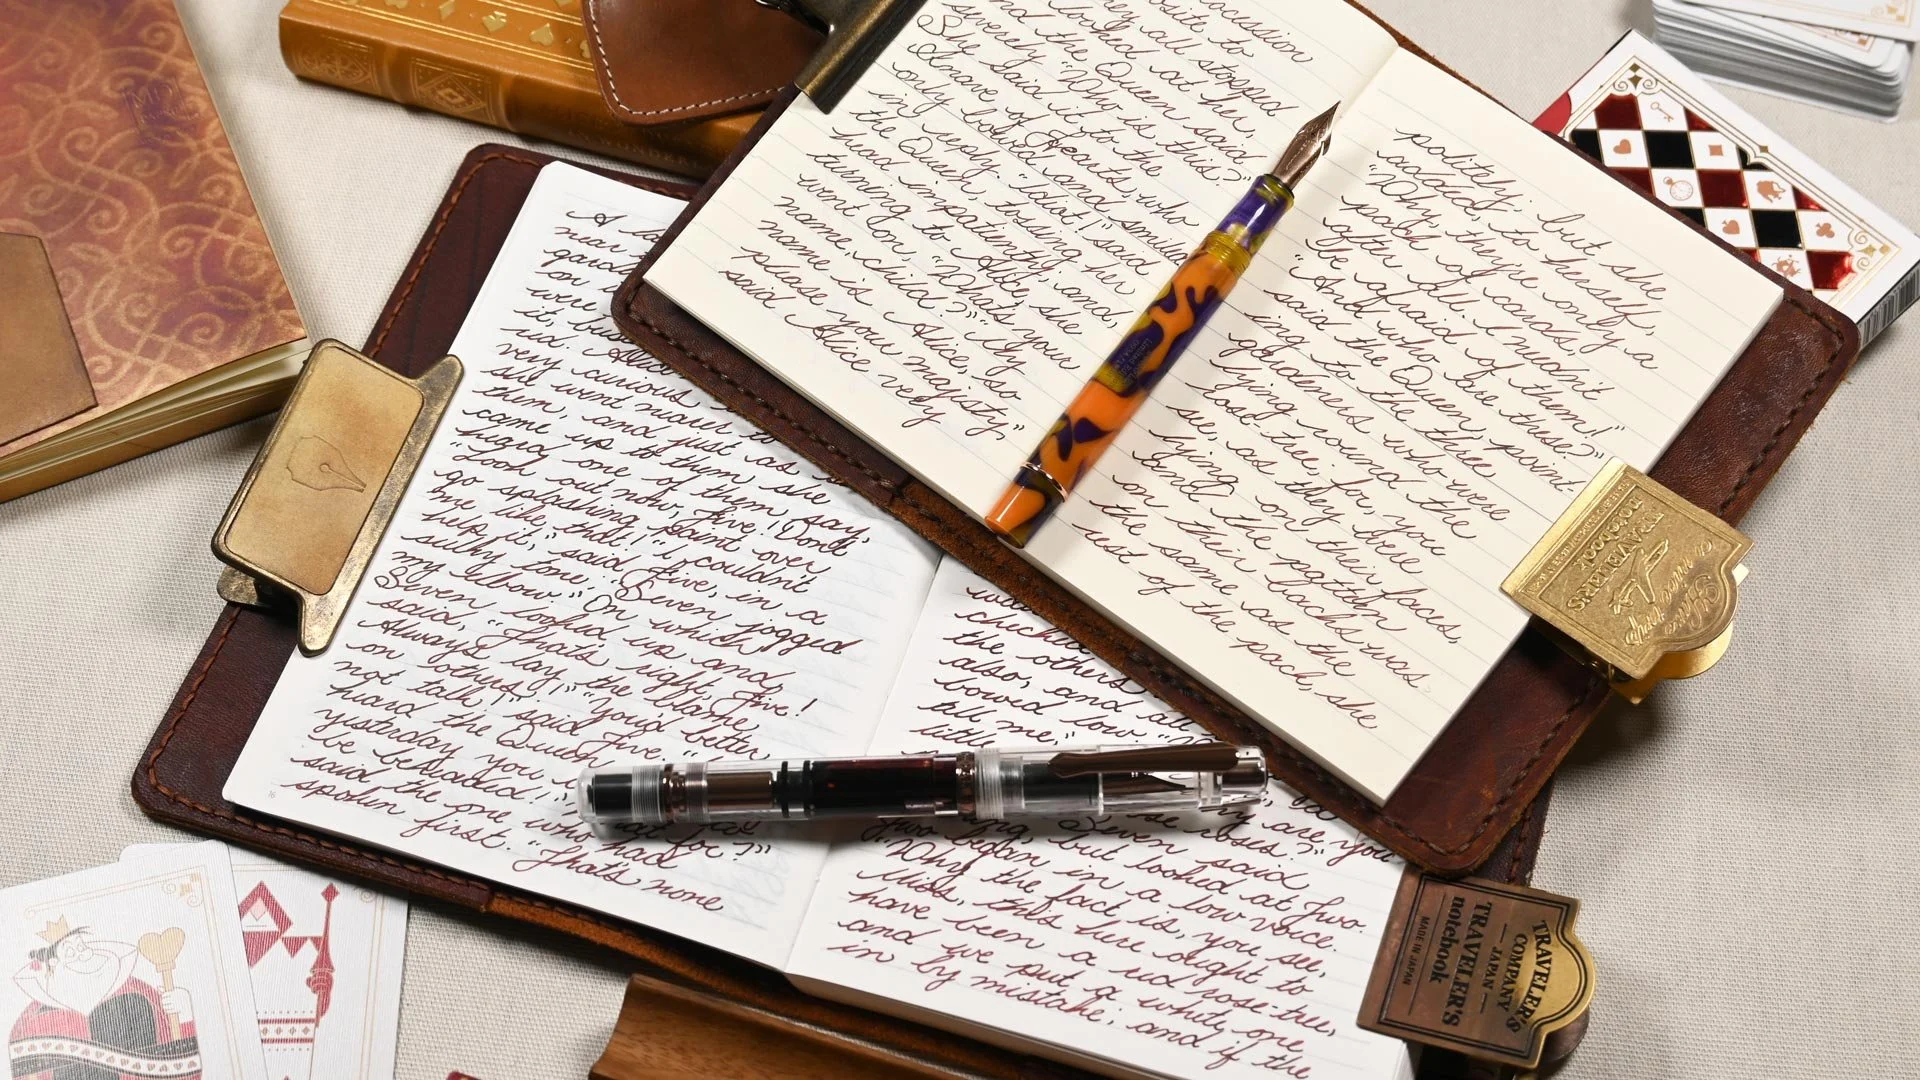 ocession
osite to
they all stopped
and looked at her,
and the Queen said
severely "Who is this?"
She said it to the
Knave of Hearts, who
only bowed and smiled
in reply. "Idiot!" said
the Queen, tossing her
head impatiently; and,
turning to Alice, she
went on, "What's your
name, child?" "My
name is Alice, so
please your majesty,"
said Alice very
politely; but she
added, to herself,
"Why, they're only a
pack of cards,
after all. I needn't
be afraid of them!"
"And who are these?"
said the Queen, point-
ing to the three
gardeners who were
lying round the
rose-tree; for, you
see, as they were
lying on their faces,
and the pattern
on their backs was
the same as the
rest of the pack, she
A
near
garde
on i
were
it, bu
and Alice
very curious
she went nearer to
them, and just as
came up to them, she
heard one of them say,
"Look out now, Five! Don't
go splashing paint over
me like that!" "I couldn't
help it," said Five, in a
sulky tone; "Seven jogged
my elbow." On which
Seven looked up and
said, "That's right, Five!
Always lay the blame
on others!" "You'd better
not talk!" said Five. "I
heard the Queen
yesterday you
be beheaded
said the one who had
spoken first. "That's none
for?"
16
the others
also, and all
bowed low.
tell me,"
little
why are you
se roses?"
Seven said
but looked at Two.
Two began in a low voice.
"Why the fact is, you see,
Miss, this here ought to
have been a red rose-tree,
and we put a white one
in by mistake; and if the
TRAVELER'S
notebook
TRAVELER'S
COMPANY
JAPAN
TRAVELER'S
notebook
MADE IN JAPAN
MD